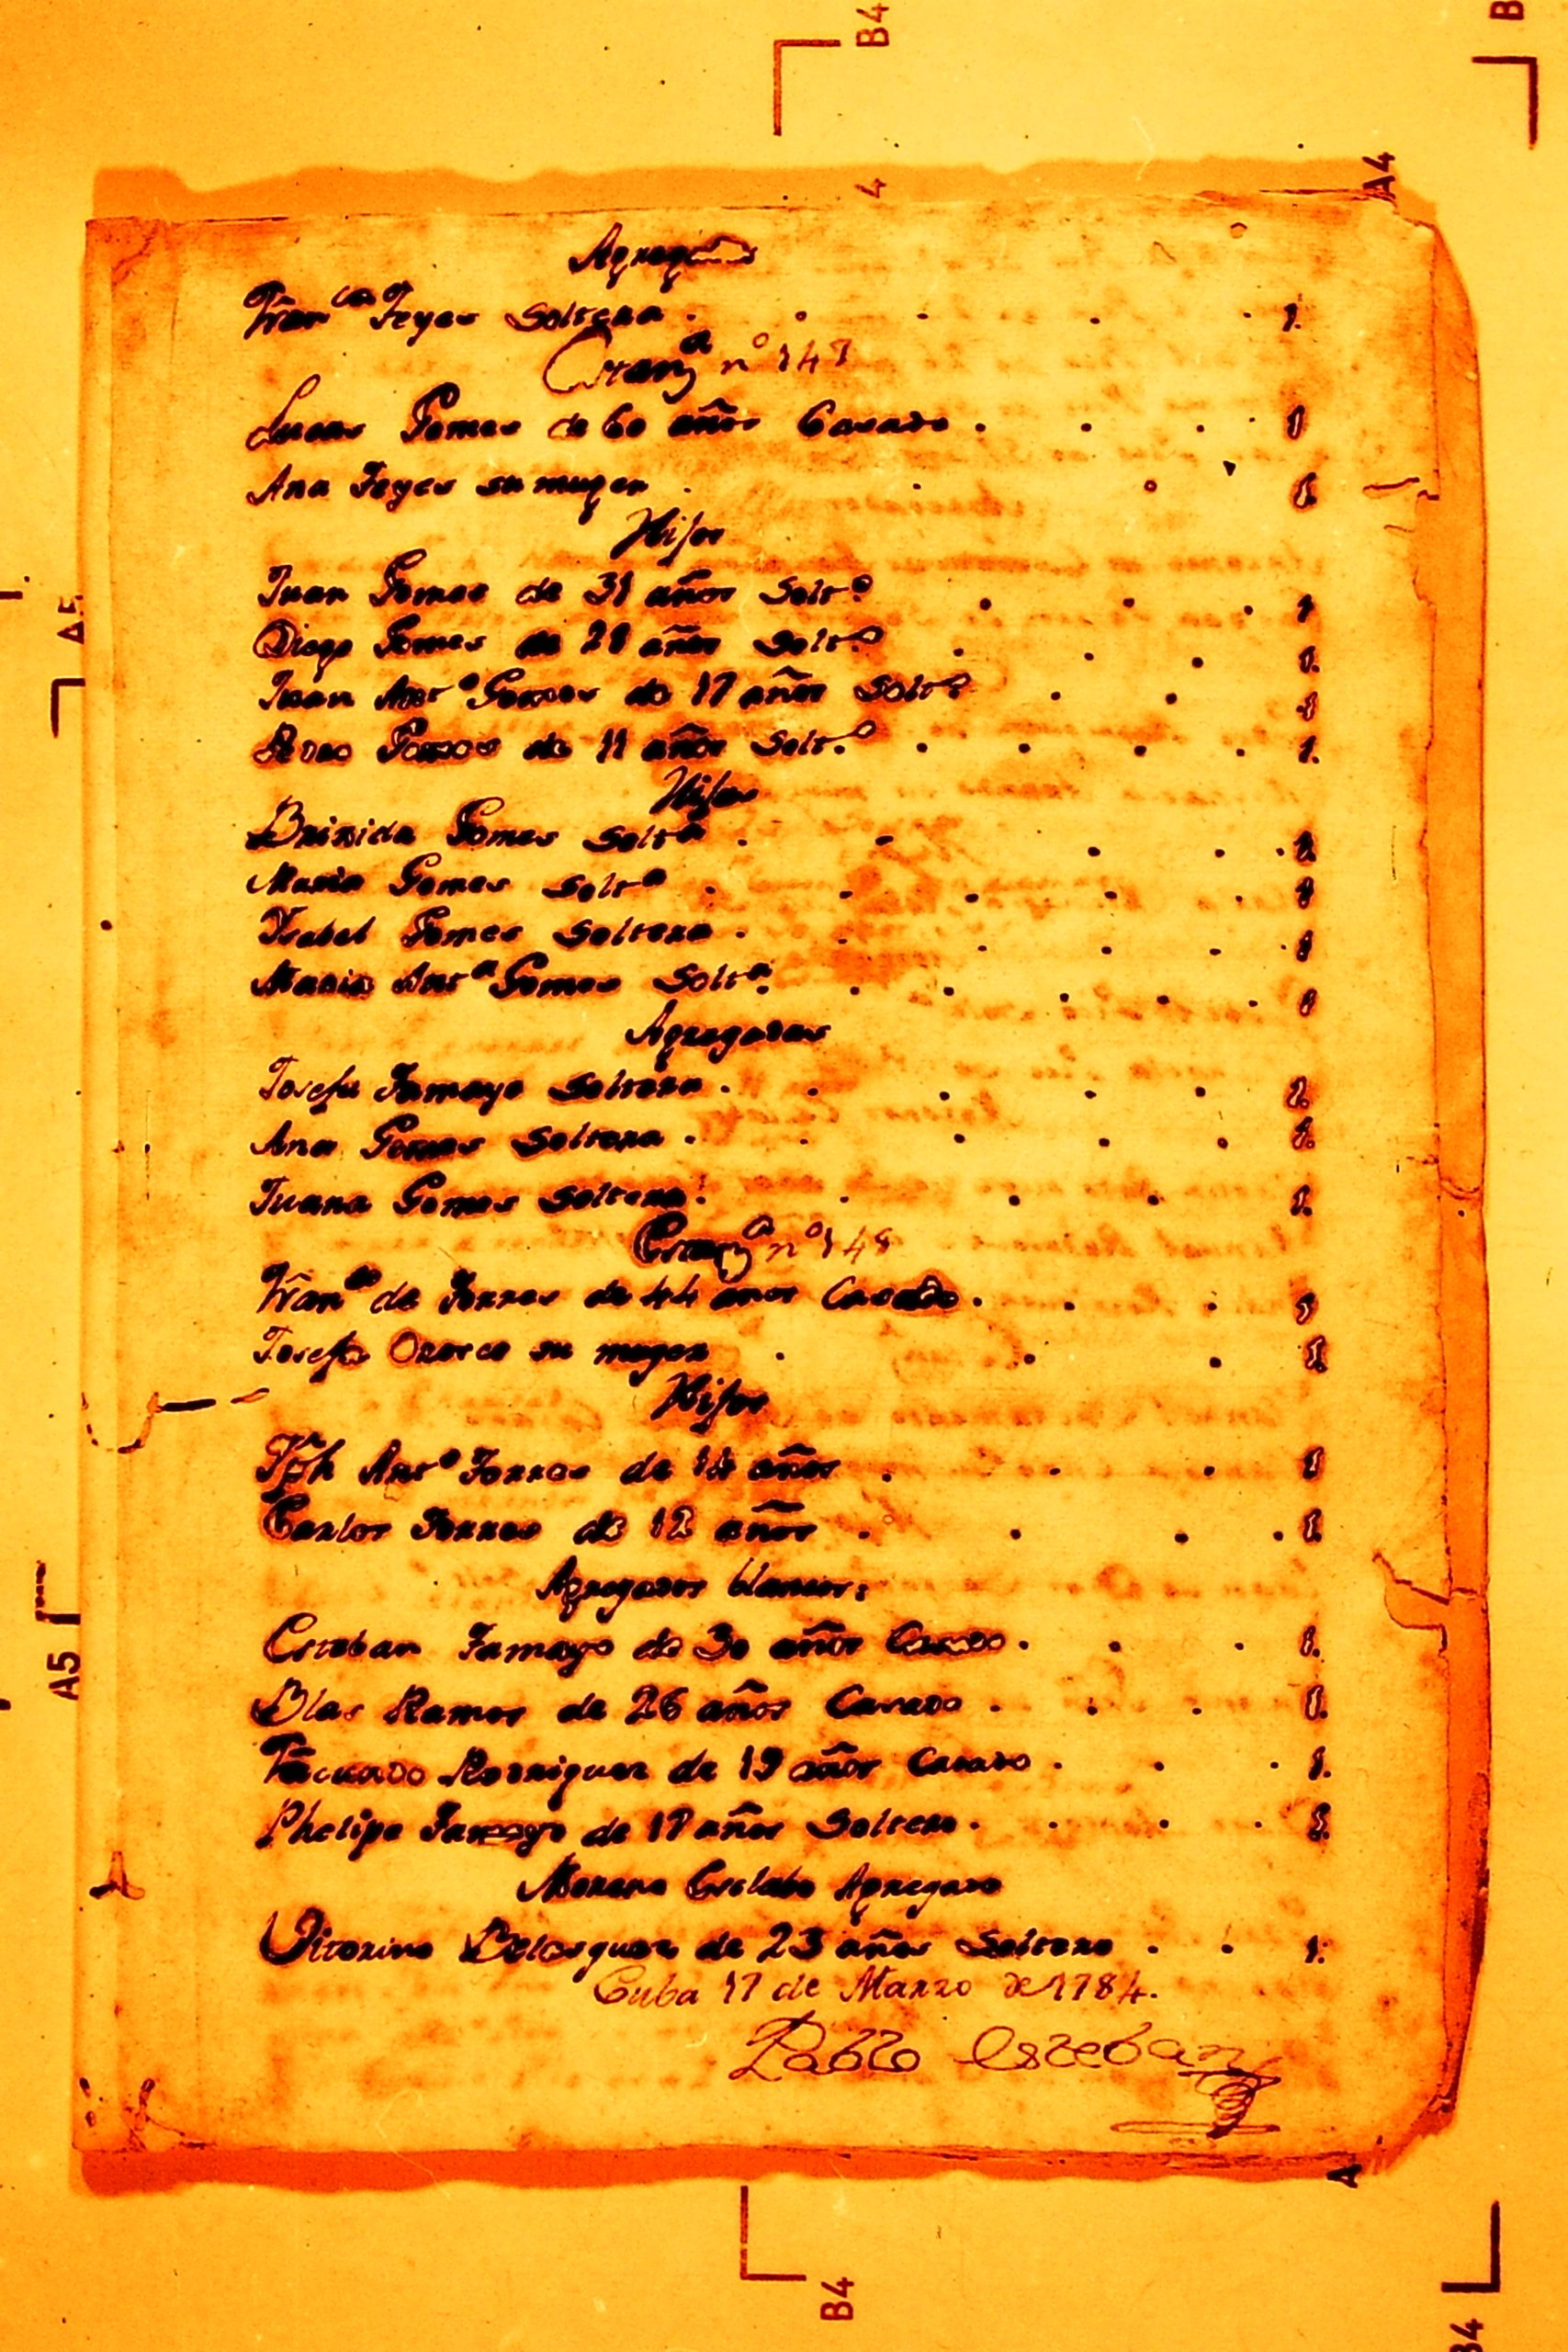 B4
B
4
A4
Agregados
Fran.ca Feyes Soltera . . . . . 1.
Estanz.a n.o 147
Lucas Gomes de 60 años Casado . . . . 1
Ana Feyes su muger . . . 1.
Hijos
Juan Gomes de 31 años Solt.o . . . 1
Diego Gomes de 28 años Solt.o . . . 1.
Juan Ant.o Gomes de 17 años Solt.o . . 1
Gomes de 11 años Solt.o . . . . 1.
Hijas
Brizida Gomes Solt.a . . . . . 1
Maria Gomes Solt.a . . . . . 1
Ysabel Gomes Soltera . . . . . . 1
Maria Ant.a Gomes Solt.a . . . . . 1
Agregadas
Josefa Tamayo Soltera . . . . . 1.
Ana Gomes Soltera . . . . . 1.
Juana Gomes Soltera . . . . 1.
Estanz.a n.o 148
Fran.co de Torres de 44 años Casado . . . 1
Josefa Orosco su muger . . . 1
Hijos
Jph Ant.o Torres de 14 años . . . 1
Carlos Torres de 12 años . . . . 1.
Agregados blancos:
Esteban Tamayo de 30 años Casado . . . 1.
Blas Ramos de 26 años Casado . . . 1.
Rodriguez de 19 años Casado . . . 1.
Phelipe Tamayo de 17 años Soltero . . . . 1.
Moreno Esclabo Agregado
Vitorino Belasquez de 23 años Soltero . . 1.
Cuba 17 de Marzo de 1784.
Pablo Esteban
A5
A5
A
B4
B4